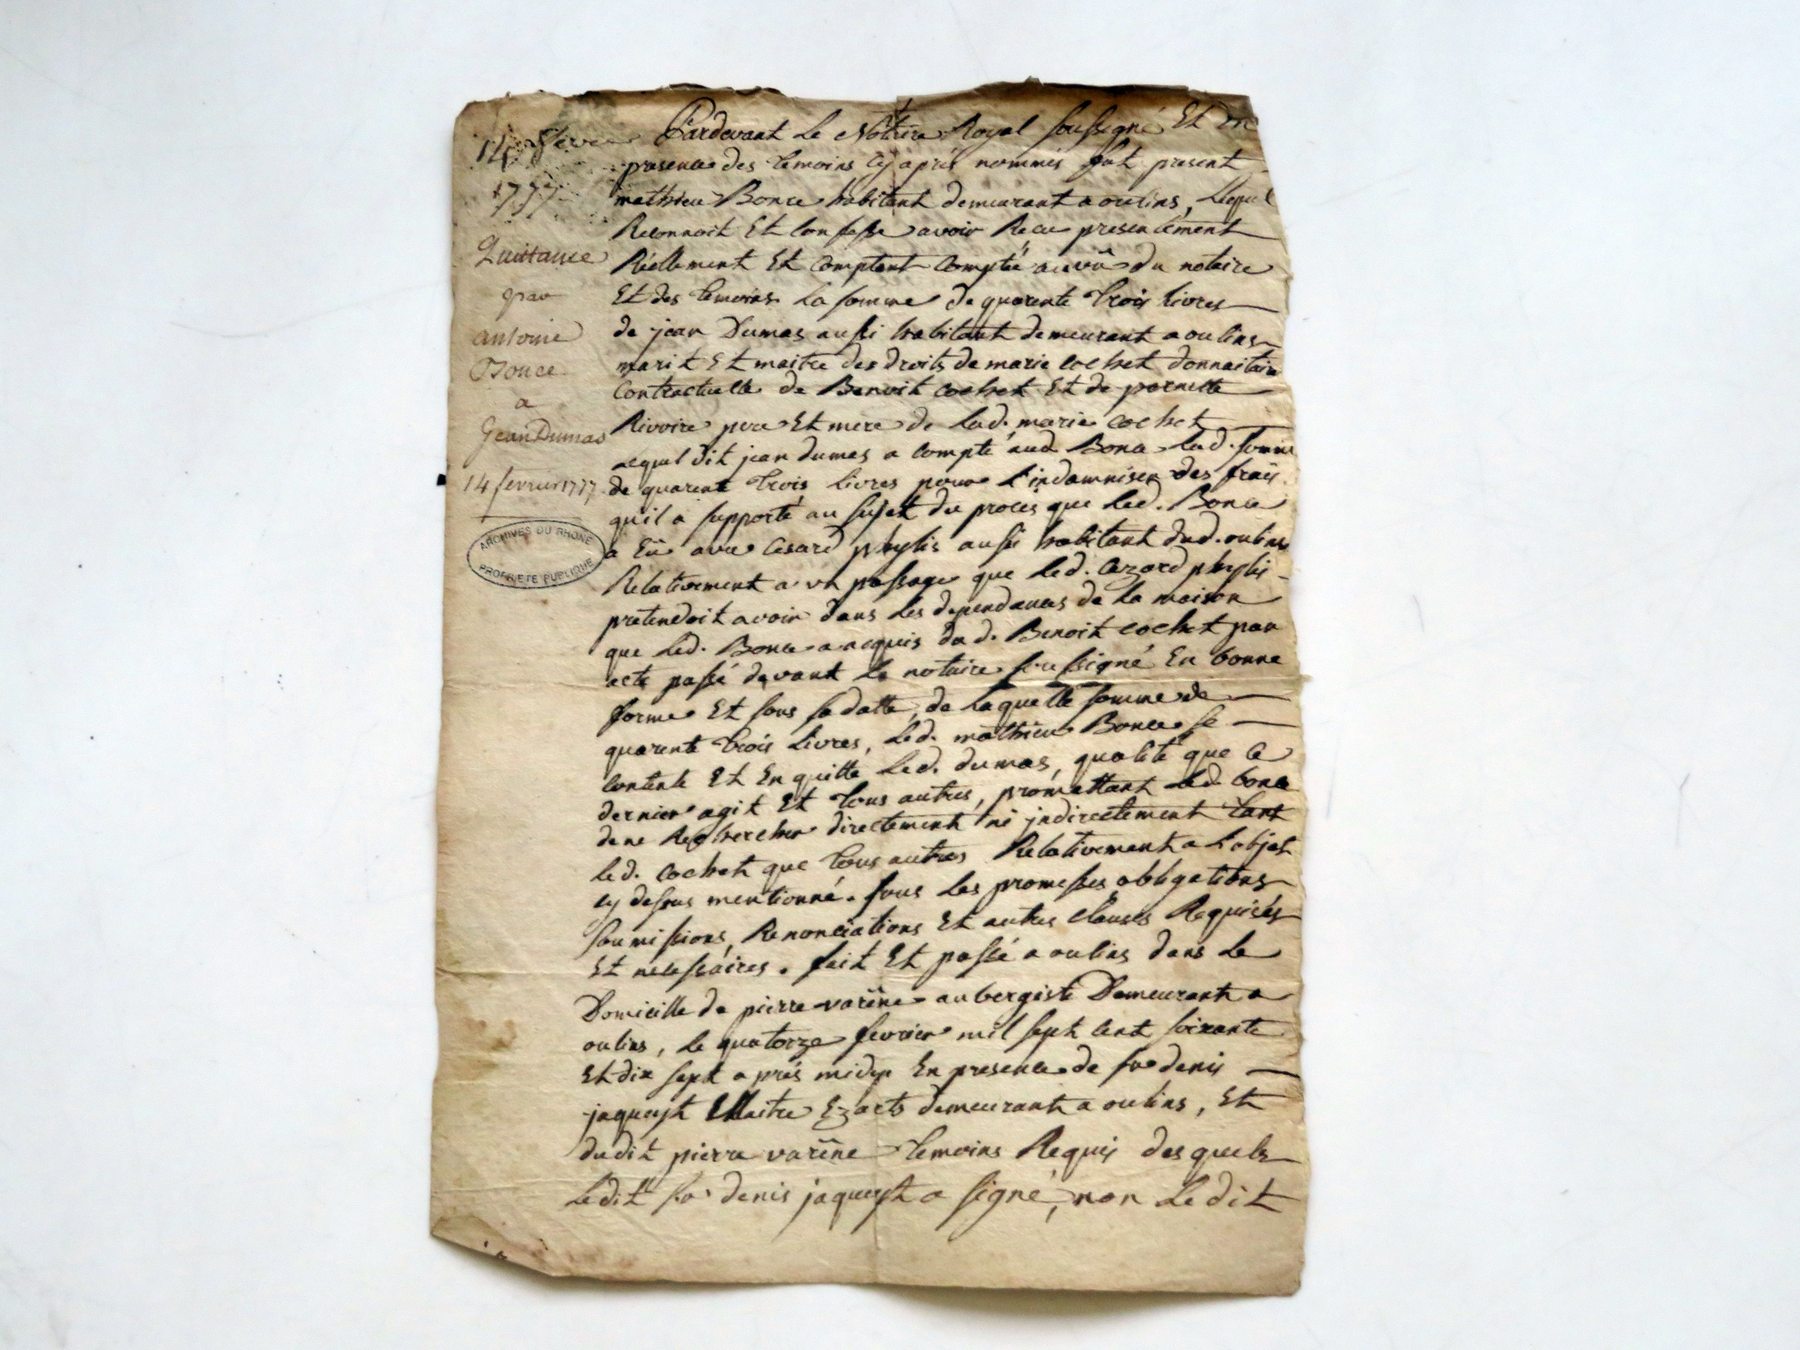 14 fevrier
1777
Quittance
par
antoine
Bonce
a
Jean Dumas
14 fevrier 1777
ARCHIVES DU RHONE
PROPRIETE PUBLIQUE
Pardevant Le Notaire Royal soussigné Et En
presence des temoins cy aprés nommés fut present
mathieu Bonce habitant demeurant a oulins, Lequel
Reconnoit Et Confesse avoir Recu presentement
Réellement Et Comptant Compté au vû du notaire
Et des temoins La somme de quarente trois livres
de jean Dumas aussi habitant demeurant a oulins
marit Et maitre des droits de marie cochet donnaitaire
Contractuelle de Benoit cochet Et de pernette
Rivoire pere Et mere de Lad. marie cochet
Lequel dit jean dumas a compté aud Bonce Lad. somme
de quarente trois Livres pour L'indamniser des frais
qu'il a supporté au sujet du procés que Led. Bonce
a Eû avec Cesard phylis aussi habitant dud. oulins
Relativement a un passage que Led. Cezard phylis
pretendoit avoir dans Les dependances de La maison
que Led. Bonce a acquis dud. Benoit cochet par
acte passé devant Le notaire soussigné En bonne
forme Et sous sa datte, de Laquelle somme de
quarente trois Livres, Led. mathieu Bonce se
Contente Et En quitte Led. dumas, qualité que Ce
dernier agit Et tous autres, promettant Led. bonce
de ne Rechercher directement ni jndirectement tant
Led. cochet que tous autres Relativement a L'objet
cy dessus mentionné. sous Les promesses, obligations
soumissions, Renonciations Et autres Clauses Requises
Et necessaires. fait Et passé a oulins dans Le
Domicille de pierre varêne aubergiste Demeurant a
oulins, Le quatorze fevrier mil sept Cent soixante
Et dix sept aprés midy En presence de sr denis
jaqueyt Maitre Ez arts demeurant a oulins, Et
dudit pierre varêne temoins Requis desquels
Ledit sr denis jaqueyt a signé, non Ledit